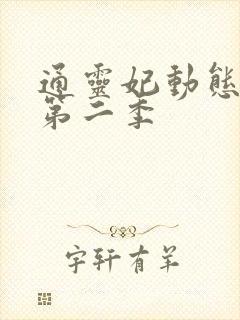 通靈妃動態
第二季
宇軒有羊